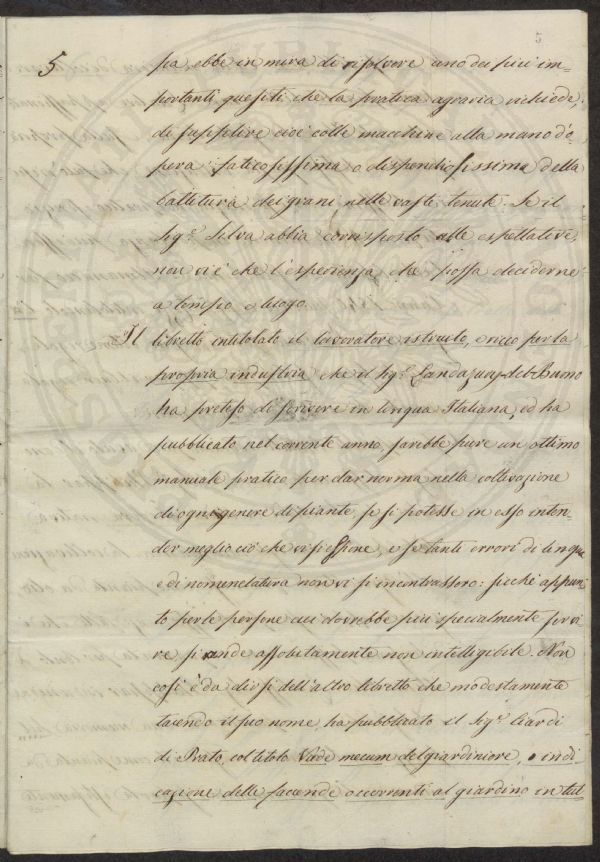 5
5
pa, ebbe in mira di risolvere uno dei più im-
portanti quesiti che la pratica agraria richiede,
di supplire cioè colle macchine alla mano d'o-
pera faticosissima e dispendiosissima della
battitura dei grani nelle vaste tenute. Se il
Sig.r Silva abbia corrisposto alle espettative,
non vi è che l'esperienza che possa deciderne
a tempo e luogo.
Il libretto intitolato il lavoratore istruito, e ricco per la
propria industria che il Sig.r Landazury del Buono
ha preteso di scrivere in lingua Italiana, ed ha
pubblicato nel corrente anno, sarebbe pure un ottimo
manuale pratico per dar norma nella coltivazione
di ogni genere di piante, se si potesse in esso inten-
der meglio ciò che vi si espone, e se tanti errori di lingua
e di nomenclatura non vi si incontrassero: sicchè appun-
to per le persone cui dovrebbe più specialmente servi
re si rende assolutamente non intelligibile. Non
così è da dirsi dell'altro libretto che modestamente
tacendo il suo nome, ha pubblicato il Sig.r Ciardi
di Prato, col titolo Vade mecum del giardiniere, o indi
cazione delle faccende occorrenti al giardino in tut